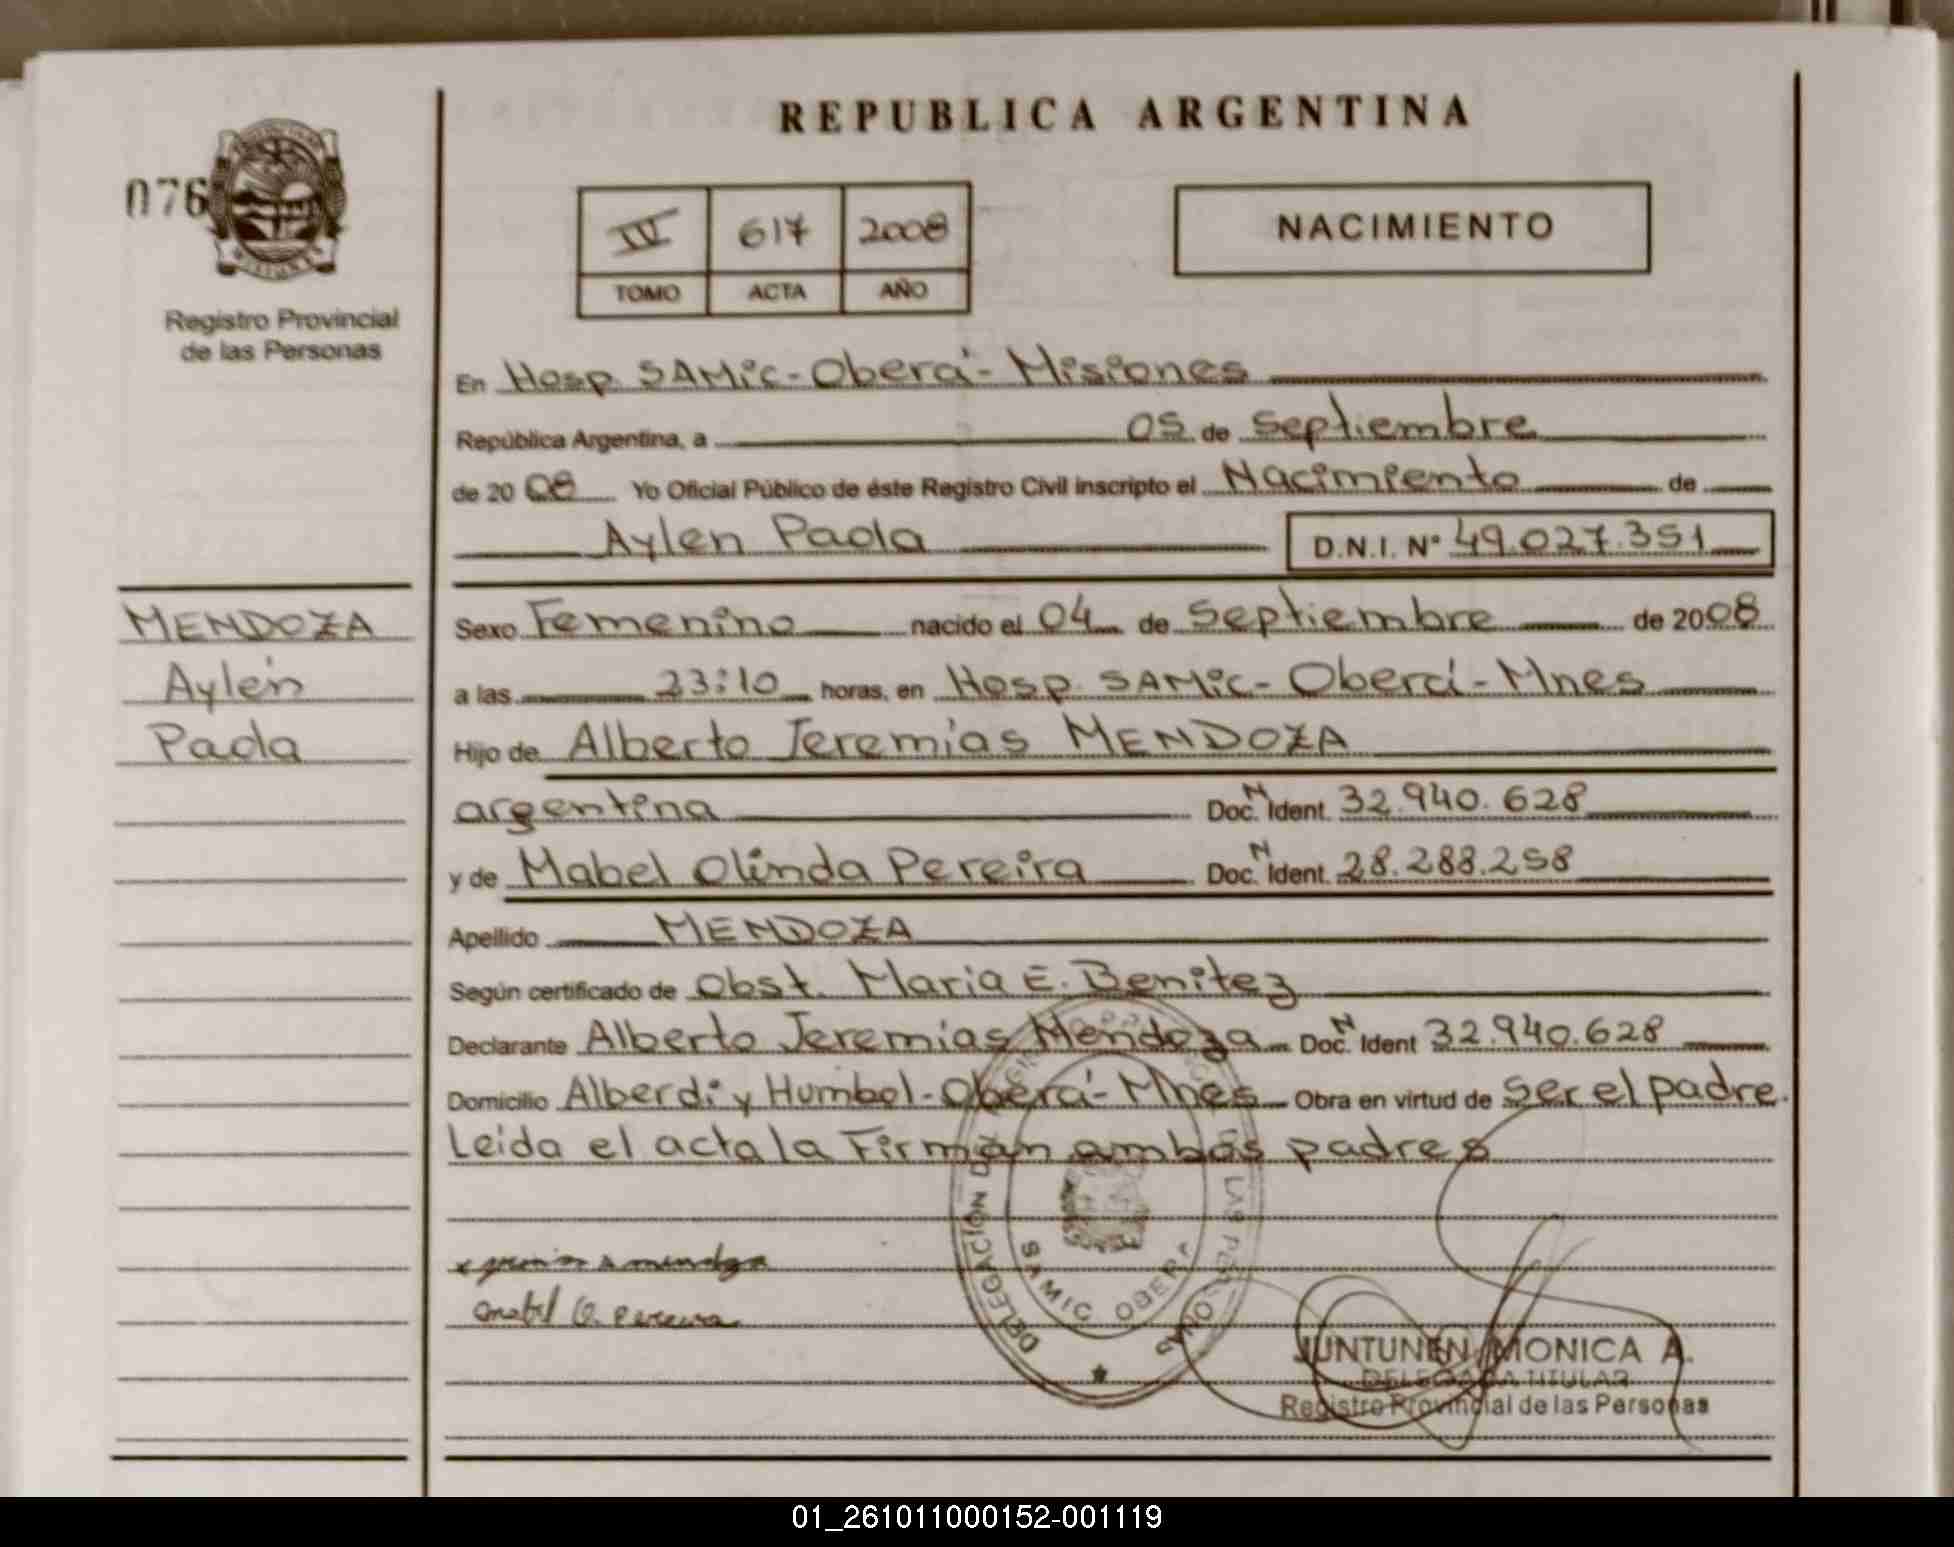 REPUBLICA ARGENTINA
076
MISIONES
Registro Provincial
de las Personas
IV 617 2008
TOMO ACTA AÑO
NACIMIENTO
En Hosp. SAMic-Oberá-Misiones
República Argentina, a 05 de Septiembre
de 2008 Yo Oficial Público de éste Registro Civil inscripto el Nacimiento de
Aylen Paola D.N.I. N° 49.027.351
MENDOZA
Aylén
Paola
Sexo Femenino nacido el 04 de Septiembre de 2008
a las 23:10 horas, en Hosp. SAMic-Oberá-Mnes
Hijo de Alberto Jeremías MENDOZA
argentina Doc. N Ident. 32.940.628
y de Mabel Olinda Pereira Doc. N Ident. 28.288.258
Apellido MENDOZA
Según certificado de Obst. Maria E. Benitez
Declarante Alberto Jeremías Mendoza Doc. N Ident 32.940.628
Domicilio Alberdi y Humbol-Oberá-Mnes Obra en virtud de ser el padre.
Leida el acta la Firman ambos padres
DELEGACIÓN DEL LAS PERSONAS
SAMIC OBERA
Mabel O. Pereira
JUNTUNEN, MONICA A.
DELEGADA TITULAR
Registro Provincial de las Personas
01_261011000152-001119